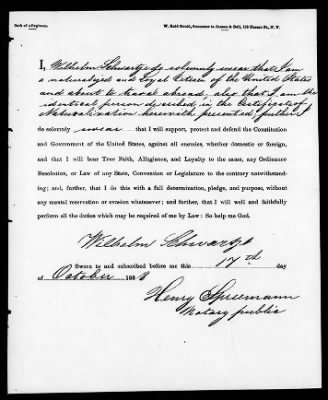 Oath of Allegiance.
W. Reid Gould, Successor to James & Bell, 155 Nassau St., N. Y.
I, Wilhelm Schwartze do solemnly swear that I am
a naturalized and loyal Citizen of the United States
and about to travel abroad, also that I am the
identical person described in the Certificate of
Naturalization herewith presented, further I
do solemnly swear that I will support, protect and defend the Constitution
and Government of the United States, against all enemies, whether domestic or foreign,
and that I will bear True Faith, Allegiance, and Loyalty to the same, any Ordinance
Resolution, or Law of any State, Convention or Legislature to the contrary notwithstand-
ing; and, further, that I do this with a full determination, pledge, and purpose, without
any mental reservation or evasion whatsoever; and further, that I will well and faithfully
perform all the duties which may be required of me by Law: So help me God.
Wilhelm Schwartze
Sworn to and subscribed before me this 17th day
of October 186
Henry
Notary public